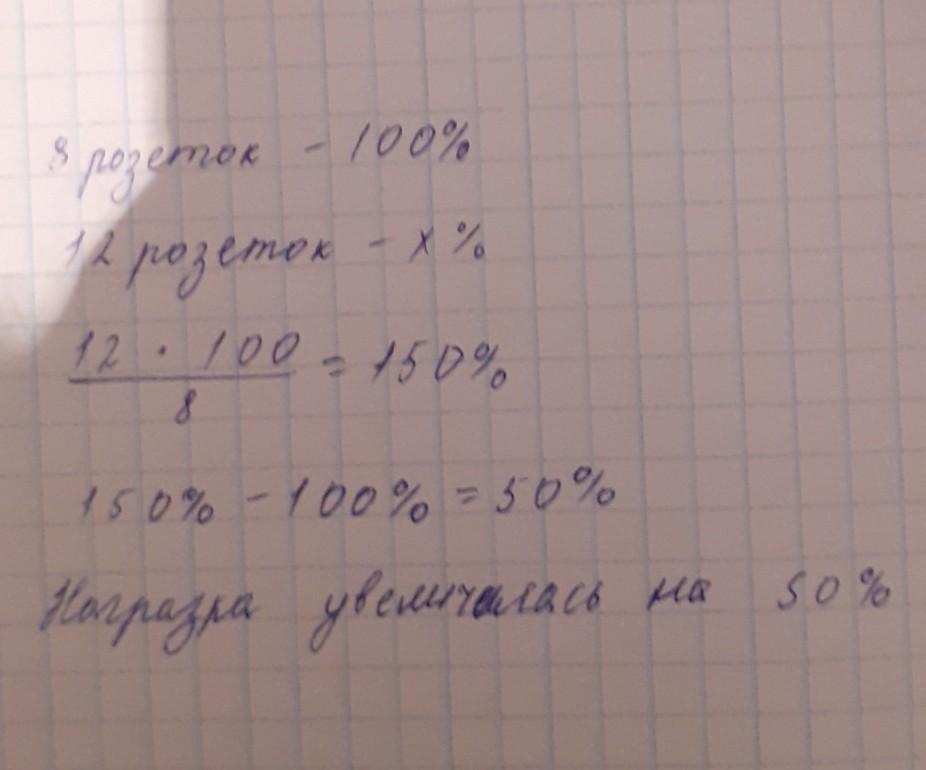 8 розеток - 100%
12 розеток - x %
12 · 100
8
= 150%
150% - 100% = 50%
Нагрузка увеличилась на 50%